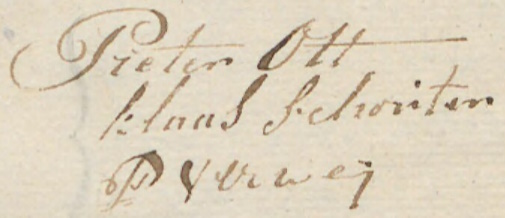 Pieter Ott
klaas Schouten
P Verweij